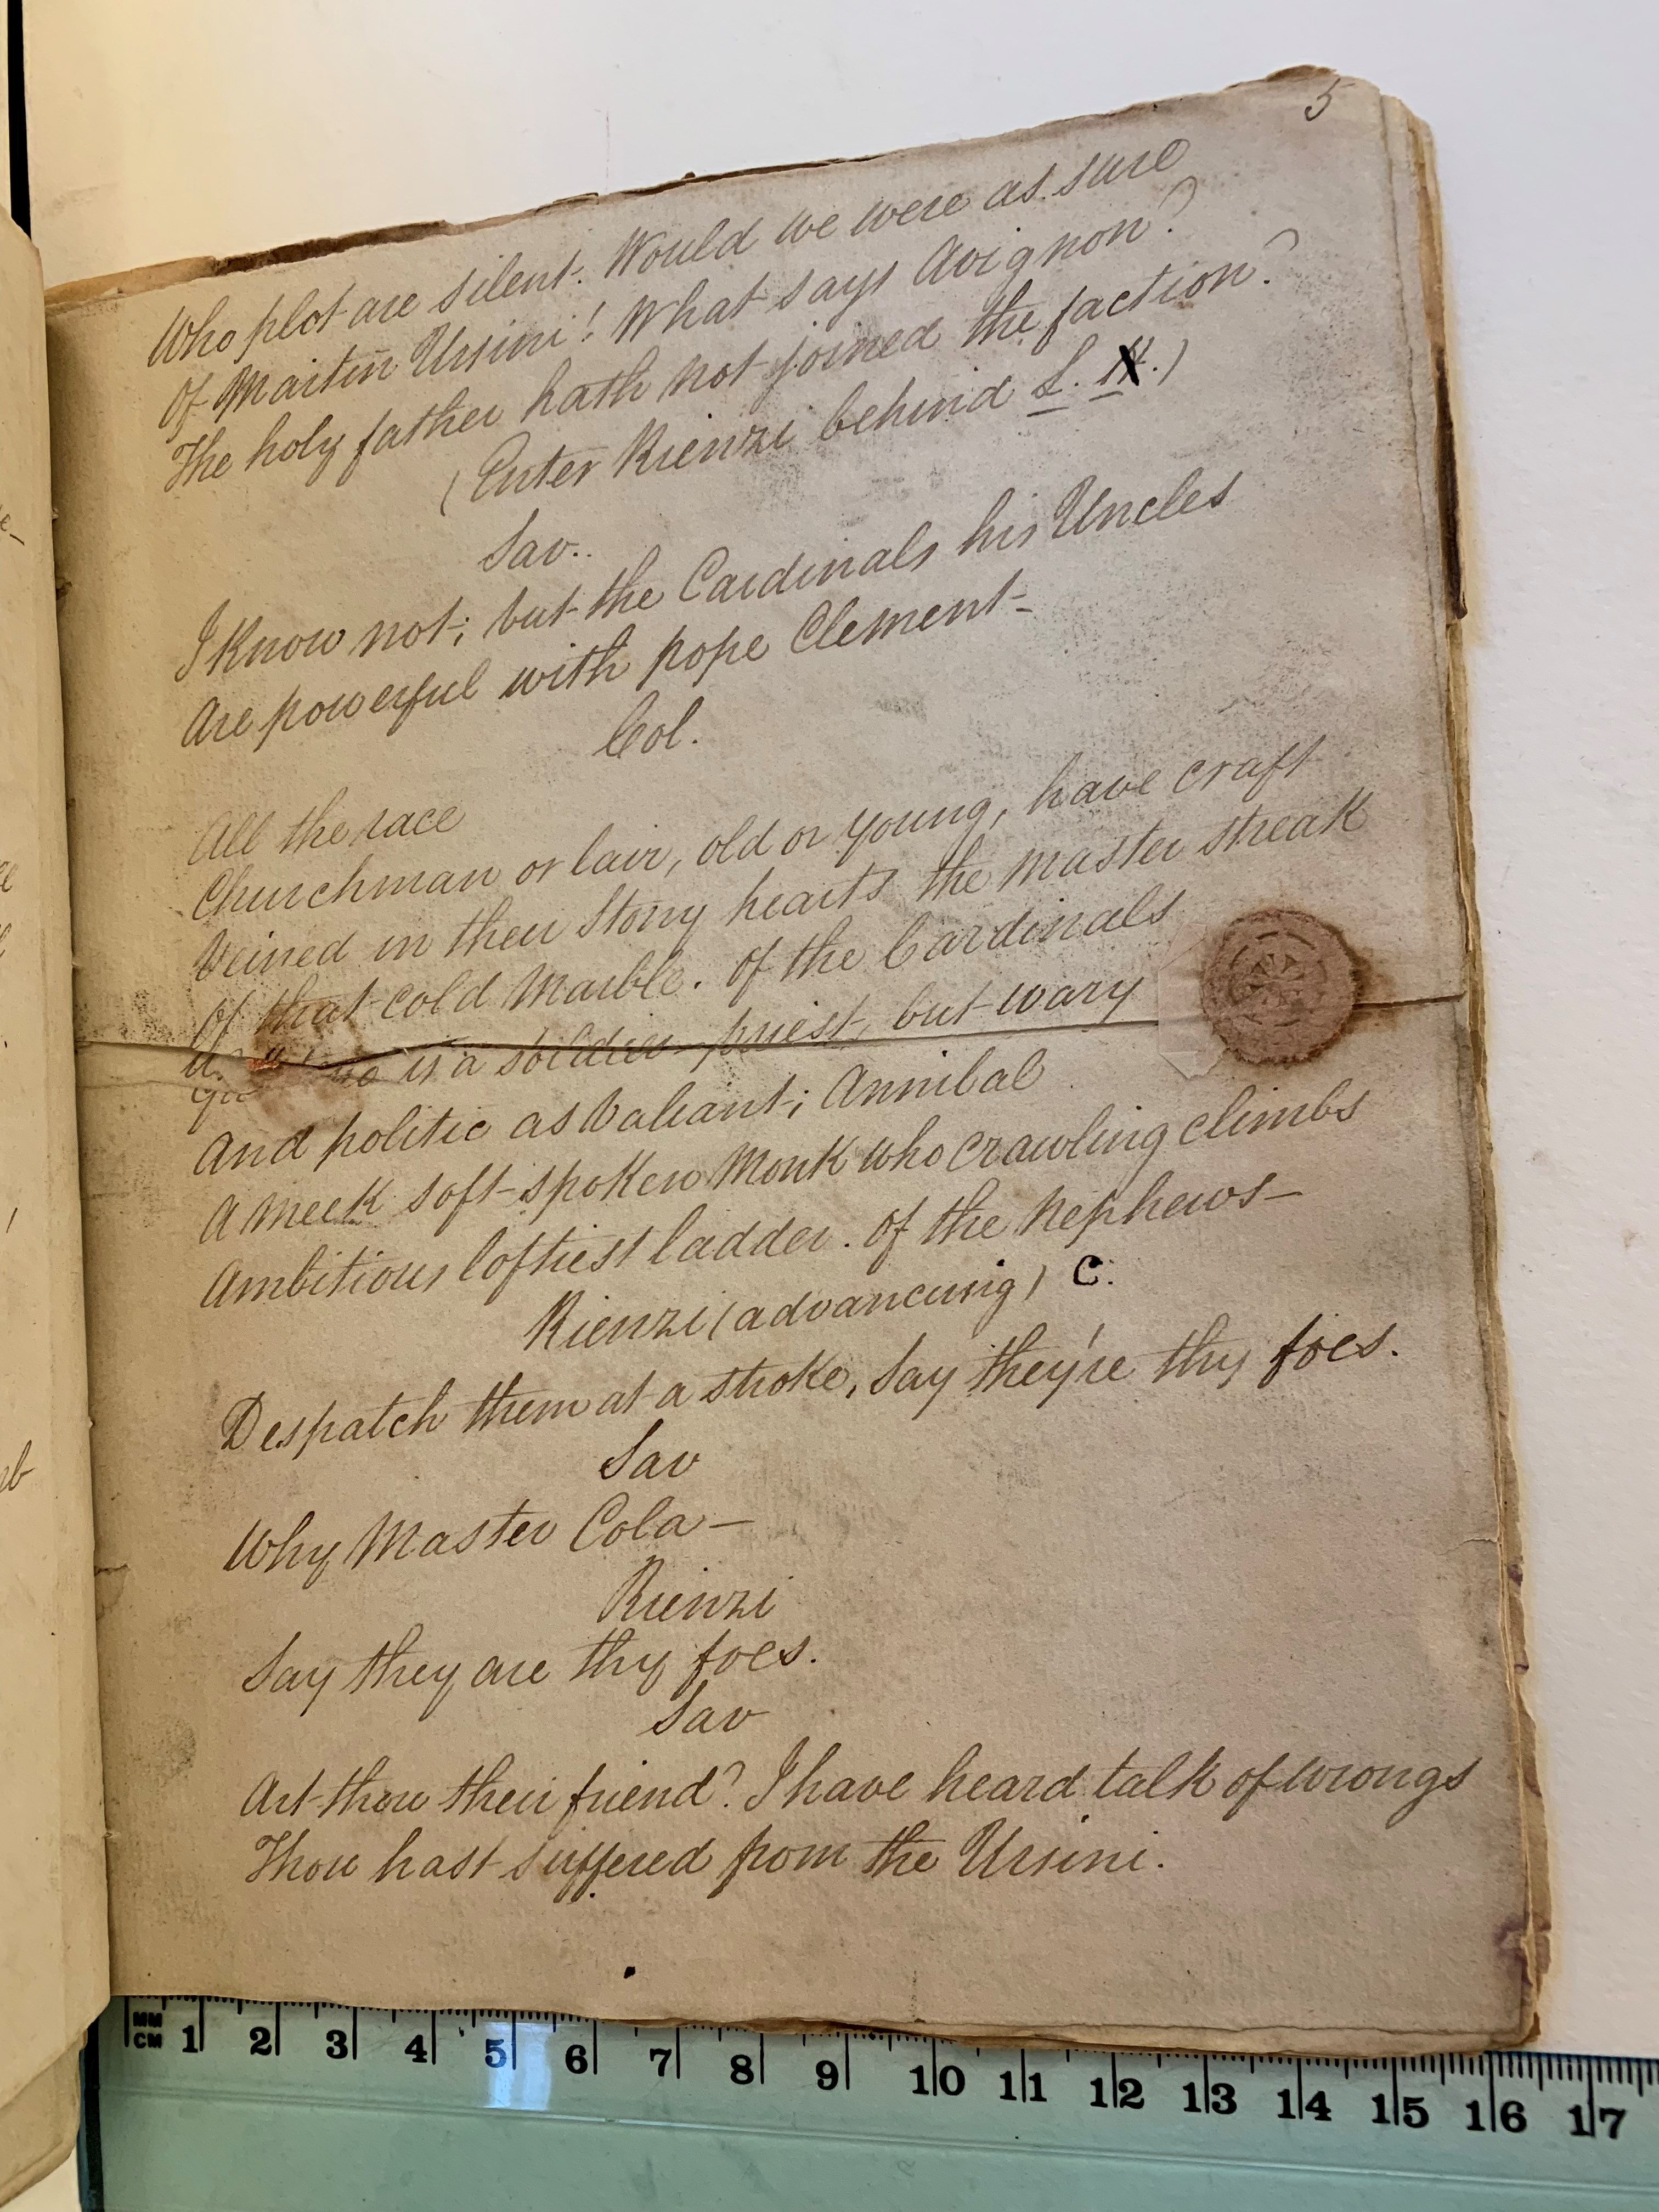 5
Who plot are silent. Would we were as sure
Of Martin Ursini! What says Avignon?
The holy father hath not joined the faction?
(Enter Rienzi behind L.
Sav..
I know not; but the Cardinals his Uncles
Are powerful with pope Clement—
Col.
All the race
Churchman or laic, old or young, have craft
Veined in their stony hearts the master streak
Of that cold marble. Of the Cardinals
is a soldier-priest, but wary
And politic as valiant; Annibal
A meek soft-spoken Monk who crawling climbs
Ambitious loftiest ladder. Of the Nephews—
Rienzi (advancing) C.
Despatch them at a stroke, Say they're thy foes.
Sav
Why Master Cola—
Rienzi
Say they are thy foes.
Sav
Art thou their friend? I have heard talk of wrongs
Thou hast suffered from the Ursini.
MM
CM 1 2 3 4 5 6 7 8 9 10 11 12 13 14 15 16 17